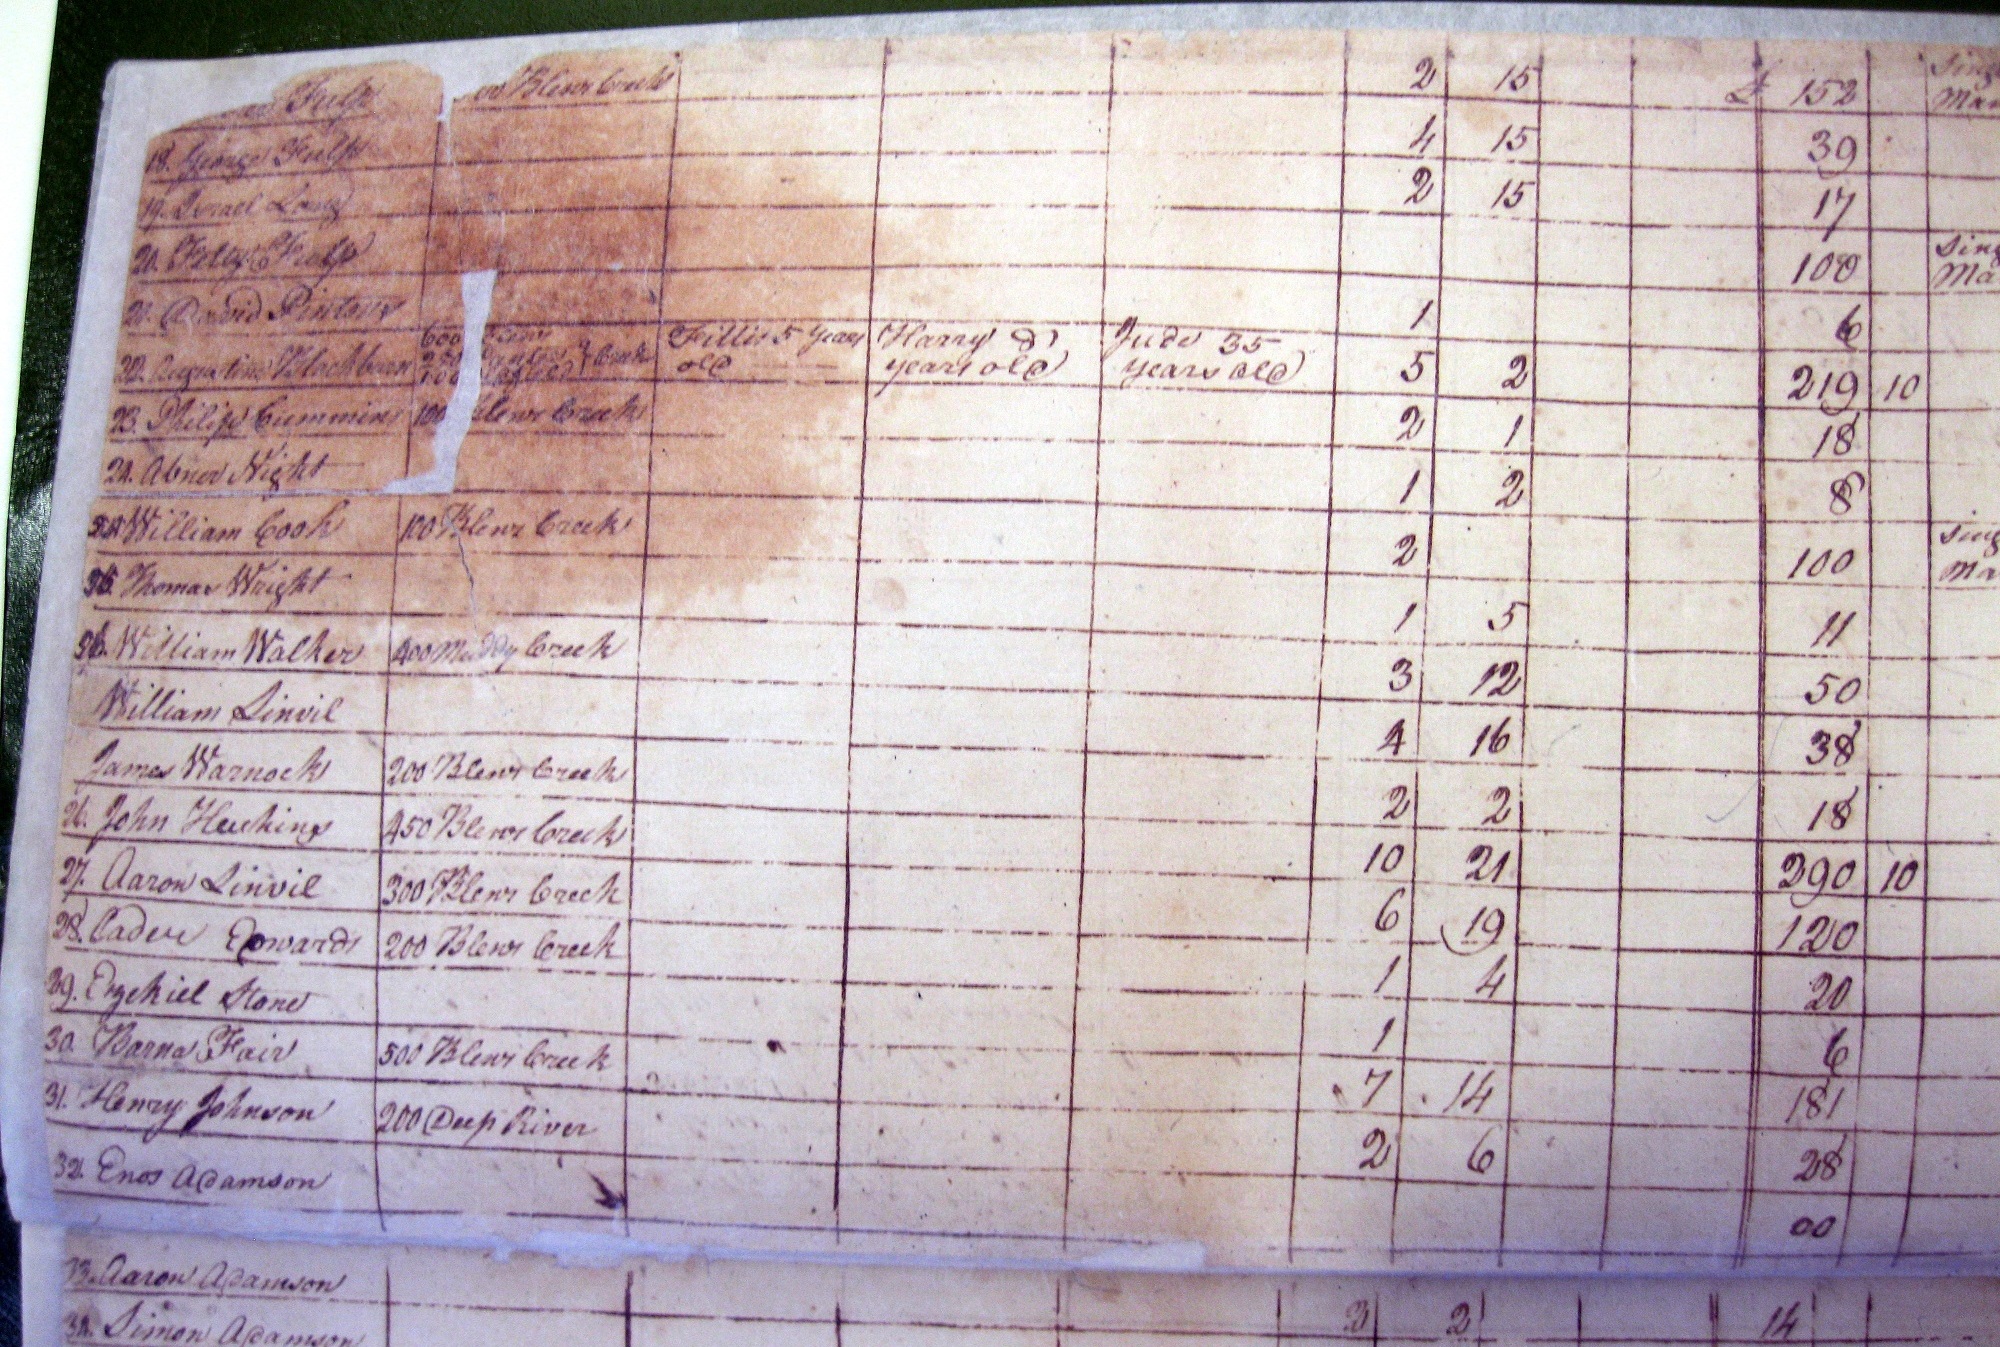 Fulp Blews Creek 2 15 £ 152
18. George Fulp 4 15 39
19. Israel Long 2 15 17
20. Fulp 100
21. David 1 6
22. Augustine Blackburn 600 Creek Fillis 5 years old Harry 2 years old Jude 35 years old 5 2 219 10
23. Philip Cummins 100 Blews Creek 2 1 18
24. Abner Night 1 2 8
William Cook 100 Blews Creek 2 100
Thomas Wright 1 5 11
William Walker 400 Muddy Creek 3 12 50
William Linvil 4 16 38
James Warnock 200 Blews Creek 2 2 18
26. John Huchins 450 Blews Creek 10 21 290 10
27. Aaron Linvil 300 Blews Creek 6 19 120
28. Cader Edwards 200 Blews Creek 1 4 20
29. Ezekiel Stone 1 6
30. Barna Fair 500 Blews Creek 7 14 181
31. Henry Johnson 200 Deep River 2 6 28
32. Enos Adamson 00
33. Aaron Adamson
34. Simon Adamson 2 2 14